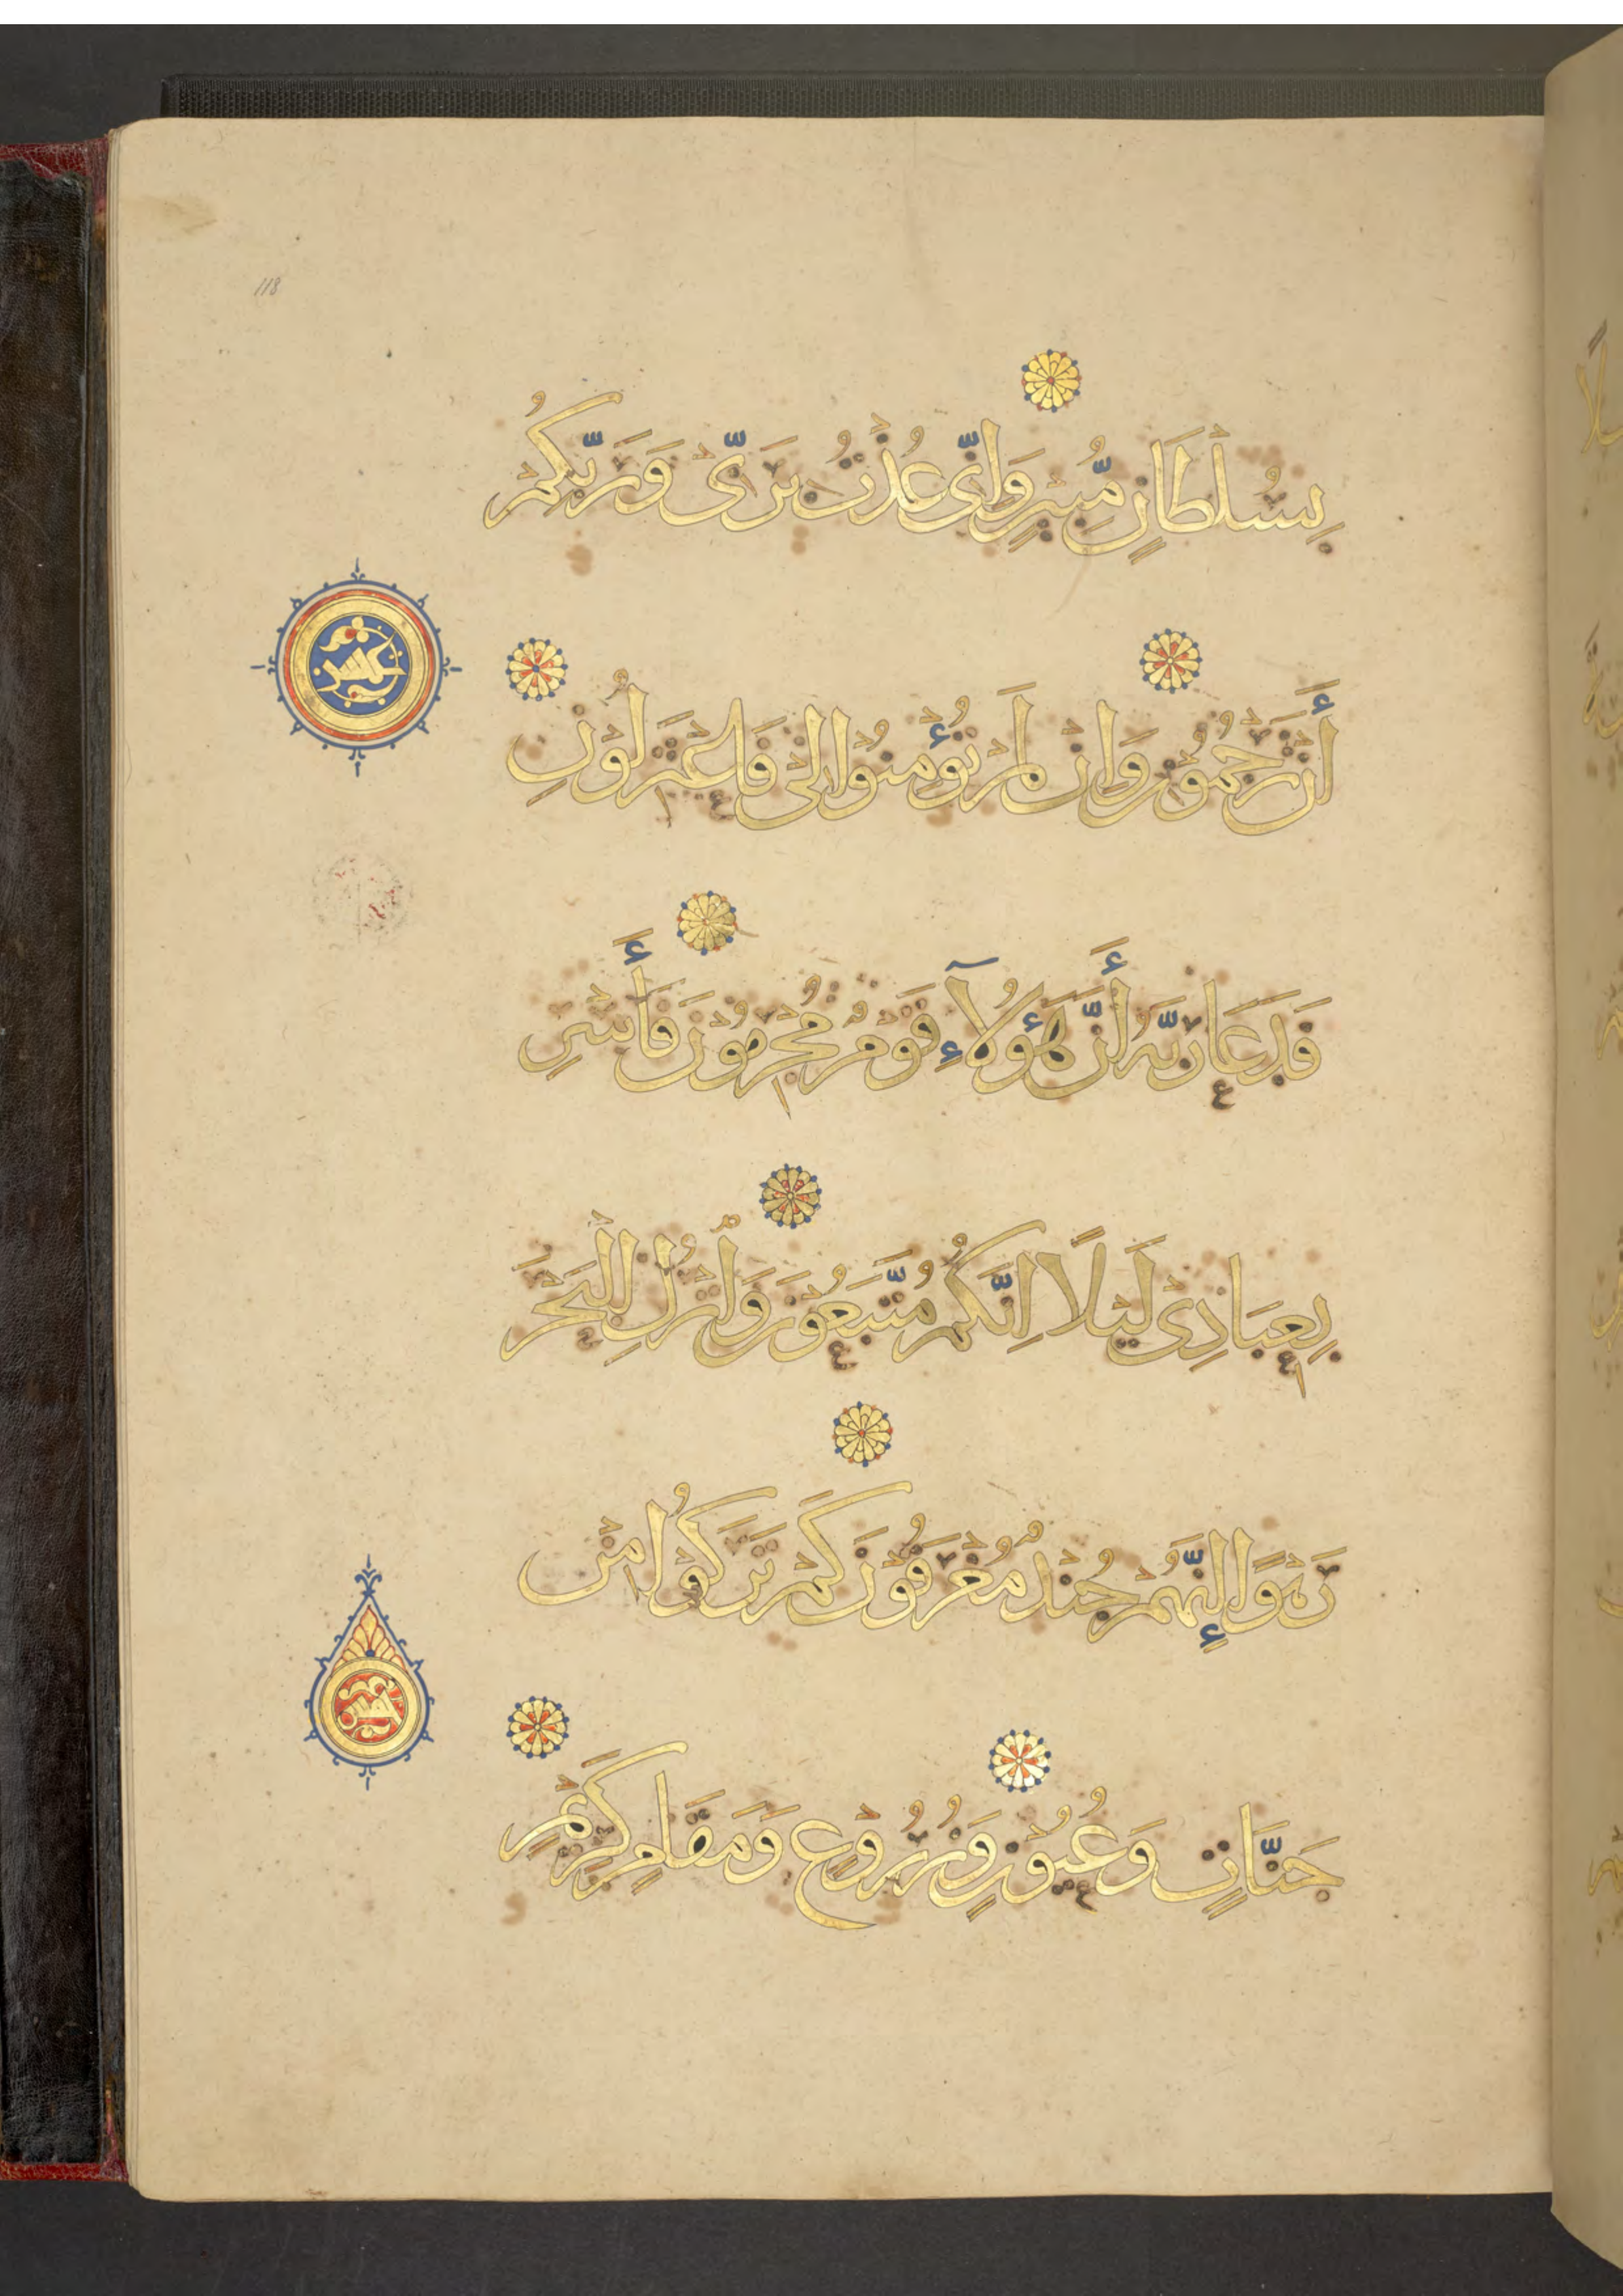 118
بِسُلْطَانٍ مُّبِينٍ وَإِنِّي عُذْتُ بِرَبِّي وَرَبِّكُمْ
أَن تَرْجُمُونِ وَإِن لَّمْ تُؤْمِنُوا لِي فَاعْتَزِلُونِ
فَدَعَا رَبَّهُ أَنَّ هَٰؤُلَاءِ قَوْمٌ مُّجْرِمُونَ فَأَسْرِ
بِعِبَادِي لَيْلًا إِنَّكُم مُّتَّبَعُونَ وَاتْرُكِ الْبَحْرَ
رَهْوًا إِنَّهُمْ جُندٌ مُّغْرَقُونَ كَمْ تَرَكُوا مِن
جَنَّاتٍ وَعُيُونٍ وَزُرُوعٍ وَمَقَامٍ كَرِيمٍ